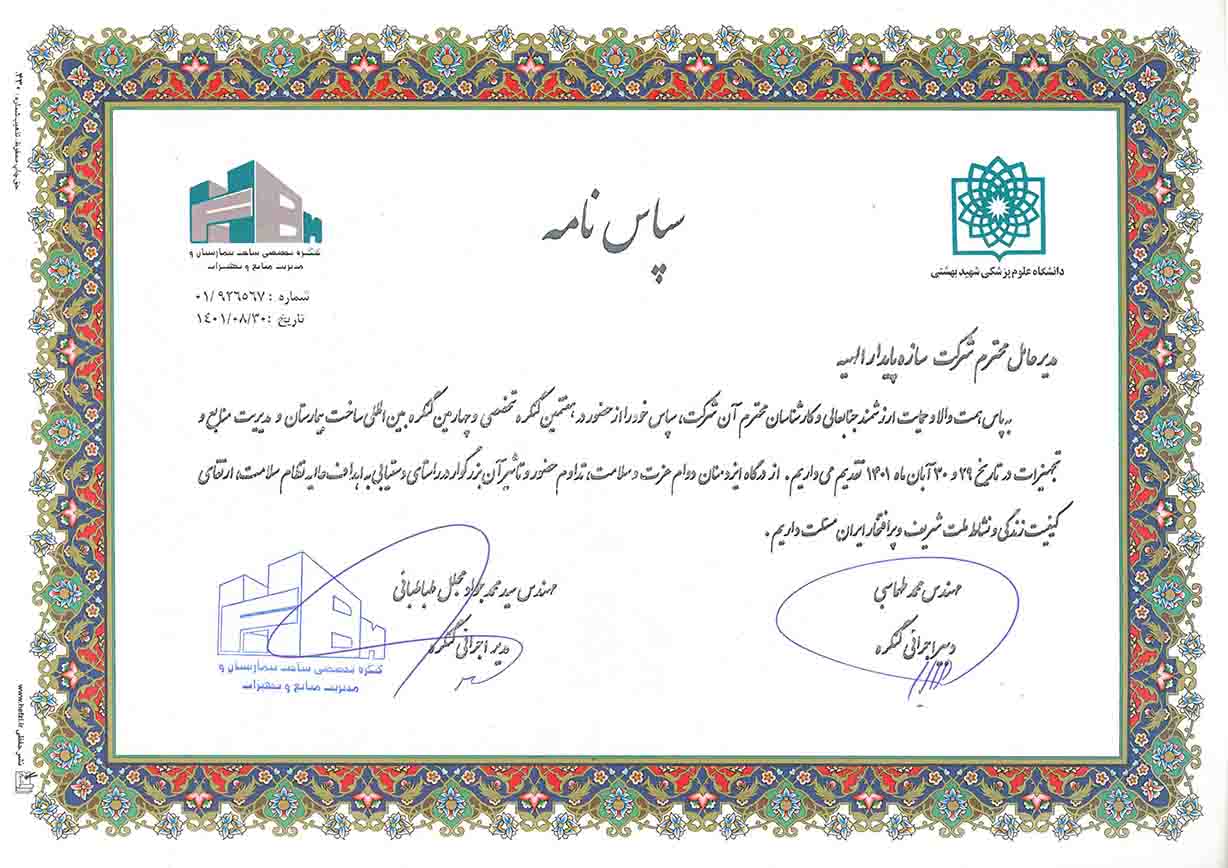 دانشگاه علوم پزشکی شهید بهشتی
سپاس نامه
کنگره تخصصی ساخت بیمارستان و
مدیریت منابع و تجهیزات
شماره : ۰۱/۹۲۶۵۶۷
تاریخ : ۱٤۰۱/۰۸/۳۰
مدیرعامل محترم شرکت سازه پایدار الهیه
به پاس همت والا و حمایت ارزشمند جنابعالی و کارشناسان محترم آن شرکت، سپاس خود را از حضور در هفتمین کنگره تخصصی و چهارمین کنگره بین المللی ساخت بیمارستان و مدیریت منابع و
تجهیزات در تاریخ ۲۹ و ۳۰ آبان ماه ۱۴۰۱ تقدیم می داریم. از درگاه ایزد منان دوام عزت و سلامت، تداوم حضور و تأثیر آن بزرگوار در راستای دستیابی به اهداف عالیه نظام سلامت، ارتقای
کیفیت زندگی و نشاط ملت شریف و پرافتخار ایران مسئلت داریم.
مهندس محمد طهماسبی
دبیر اجرائی کنگره
مهندس سید محمد جواد مجلل طباطبائی
مدیر اجرائی کنگره
کنگره تخصصی ساخت بیمارستان و
مدیریت منابع و تجهیزات
حق چاپ محفوظ، تذهیب شماره : ۴۳۰
www.hefzi.ir نشر حفظی